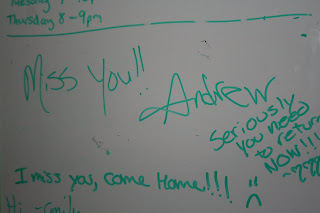 Thursday 8-9pm
Miss You!!
Andrew
Seriously
you need
to return
NOW!!!
~???
I miss you, come Home!!! :(
Hi -Emily